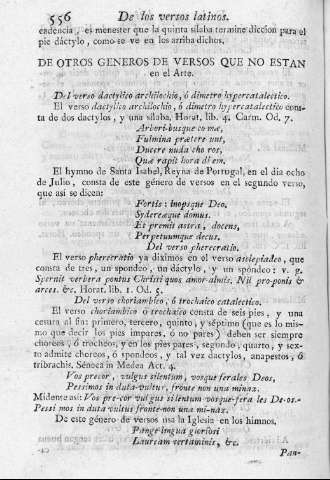 556 De los versos latinos.
cadencia, es menester que la quinta silaba termine diccion para el
pie dáctylo, como se ve en los arriba dichos.
DE OTROS GENEROS DE VERSOS QUE NO ESTAN
en el Arte.
Del verso dactylico archilochio, ó dimetro hypercatalectico.
El verso dactylico archilochio, ó dimetro hypercatalectico cons-
ta de dos dactylos, y una sílaba, Horat, lib. 4. Carm. Od. 7.
Arbori-busque co mæ,
Fulmina prætere unt,
Ducere nuda cho ros,
Quæ rapit hora di em.
El hymno de Santa Isabel, Reyna de Portugal, en el dia ocho
de Julio, consta de este género de versos en el segundo verso,
que asi se dicen:
Fortis: inopsque Deo.
Sydereæque domus.
Et premis astra, docens,
Perpetuumque decus.
Del verso pherecratio.
El verso pherecratio ya diximos en el verso asclepiadeo, que
consta de tres, un spondeo, un dáctylo, y un spóndeo: v. g.
Spernit verbera pontus Christi quos amor almis. Nil pro-ponis &
arces. &c. Horat. lib. 1. Od. 5.
Del verso choriambico, ó trochaico catalectico.
El verso choriambico ó trochaico consta de seis pies, y una
cesura al fin: primero, tercero, quinto, y séptimo (que es lo mis-
mo que decir los pies impares, ó no pares) deben ser siempre
choreos, ó trocheos, y en los pies pares, segundo, quarto, y sex-
to admite choreos, ó spondeos, y tal vez dactylos, anapestos, ó
tribrachis. Séneca in Medea Act. 4.
Vos precor, vulgus silentum, vosque ferales Deos,
Pessimos in duta-vultur, fronte non una minax.
Midense asi: Vos pre-cor vul-gus silentum vosque-fera les De-os.-
Pessi mos in duta vultus fronte-non una mi-nax.
De este género de versos usa la Iglesia en los himnos,
Pange lingua gloriosi
Lauream certaminis, &c.
Pan-